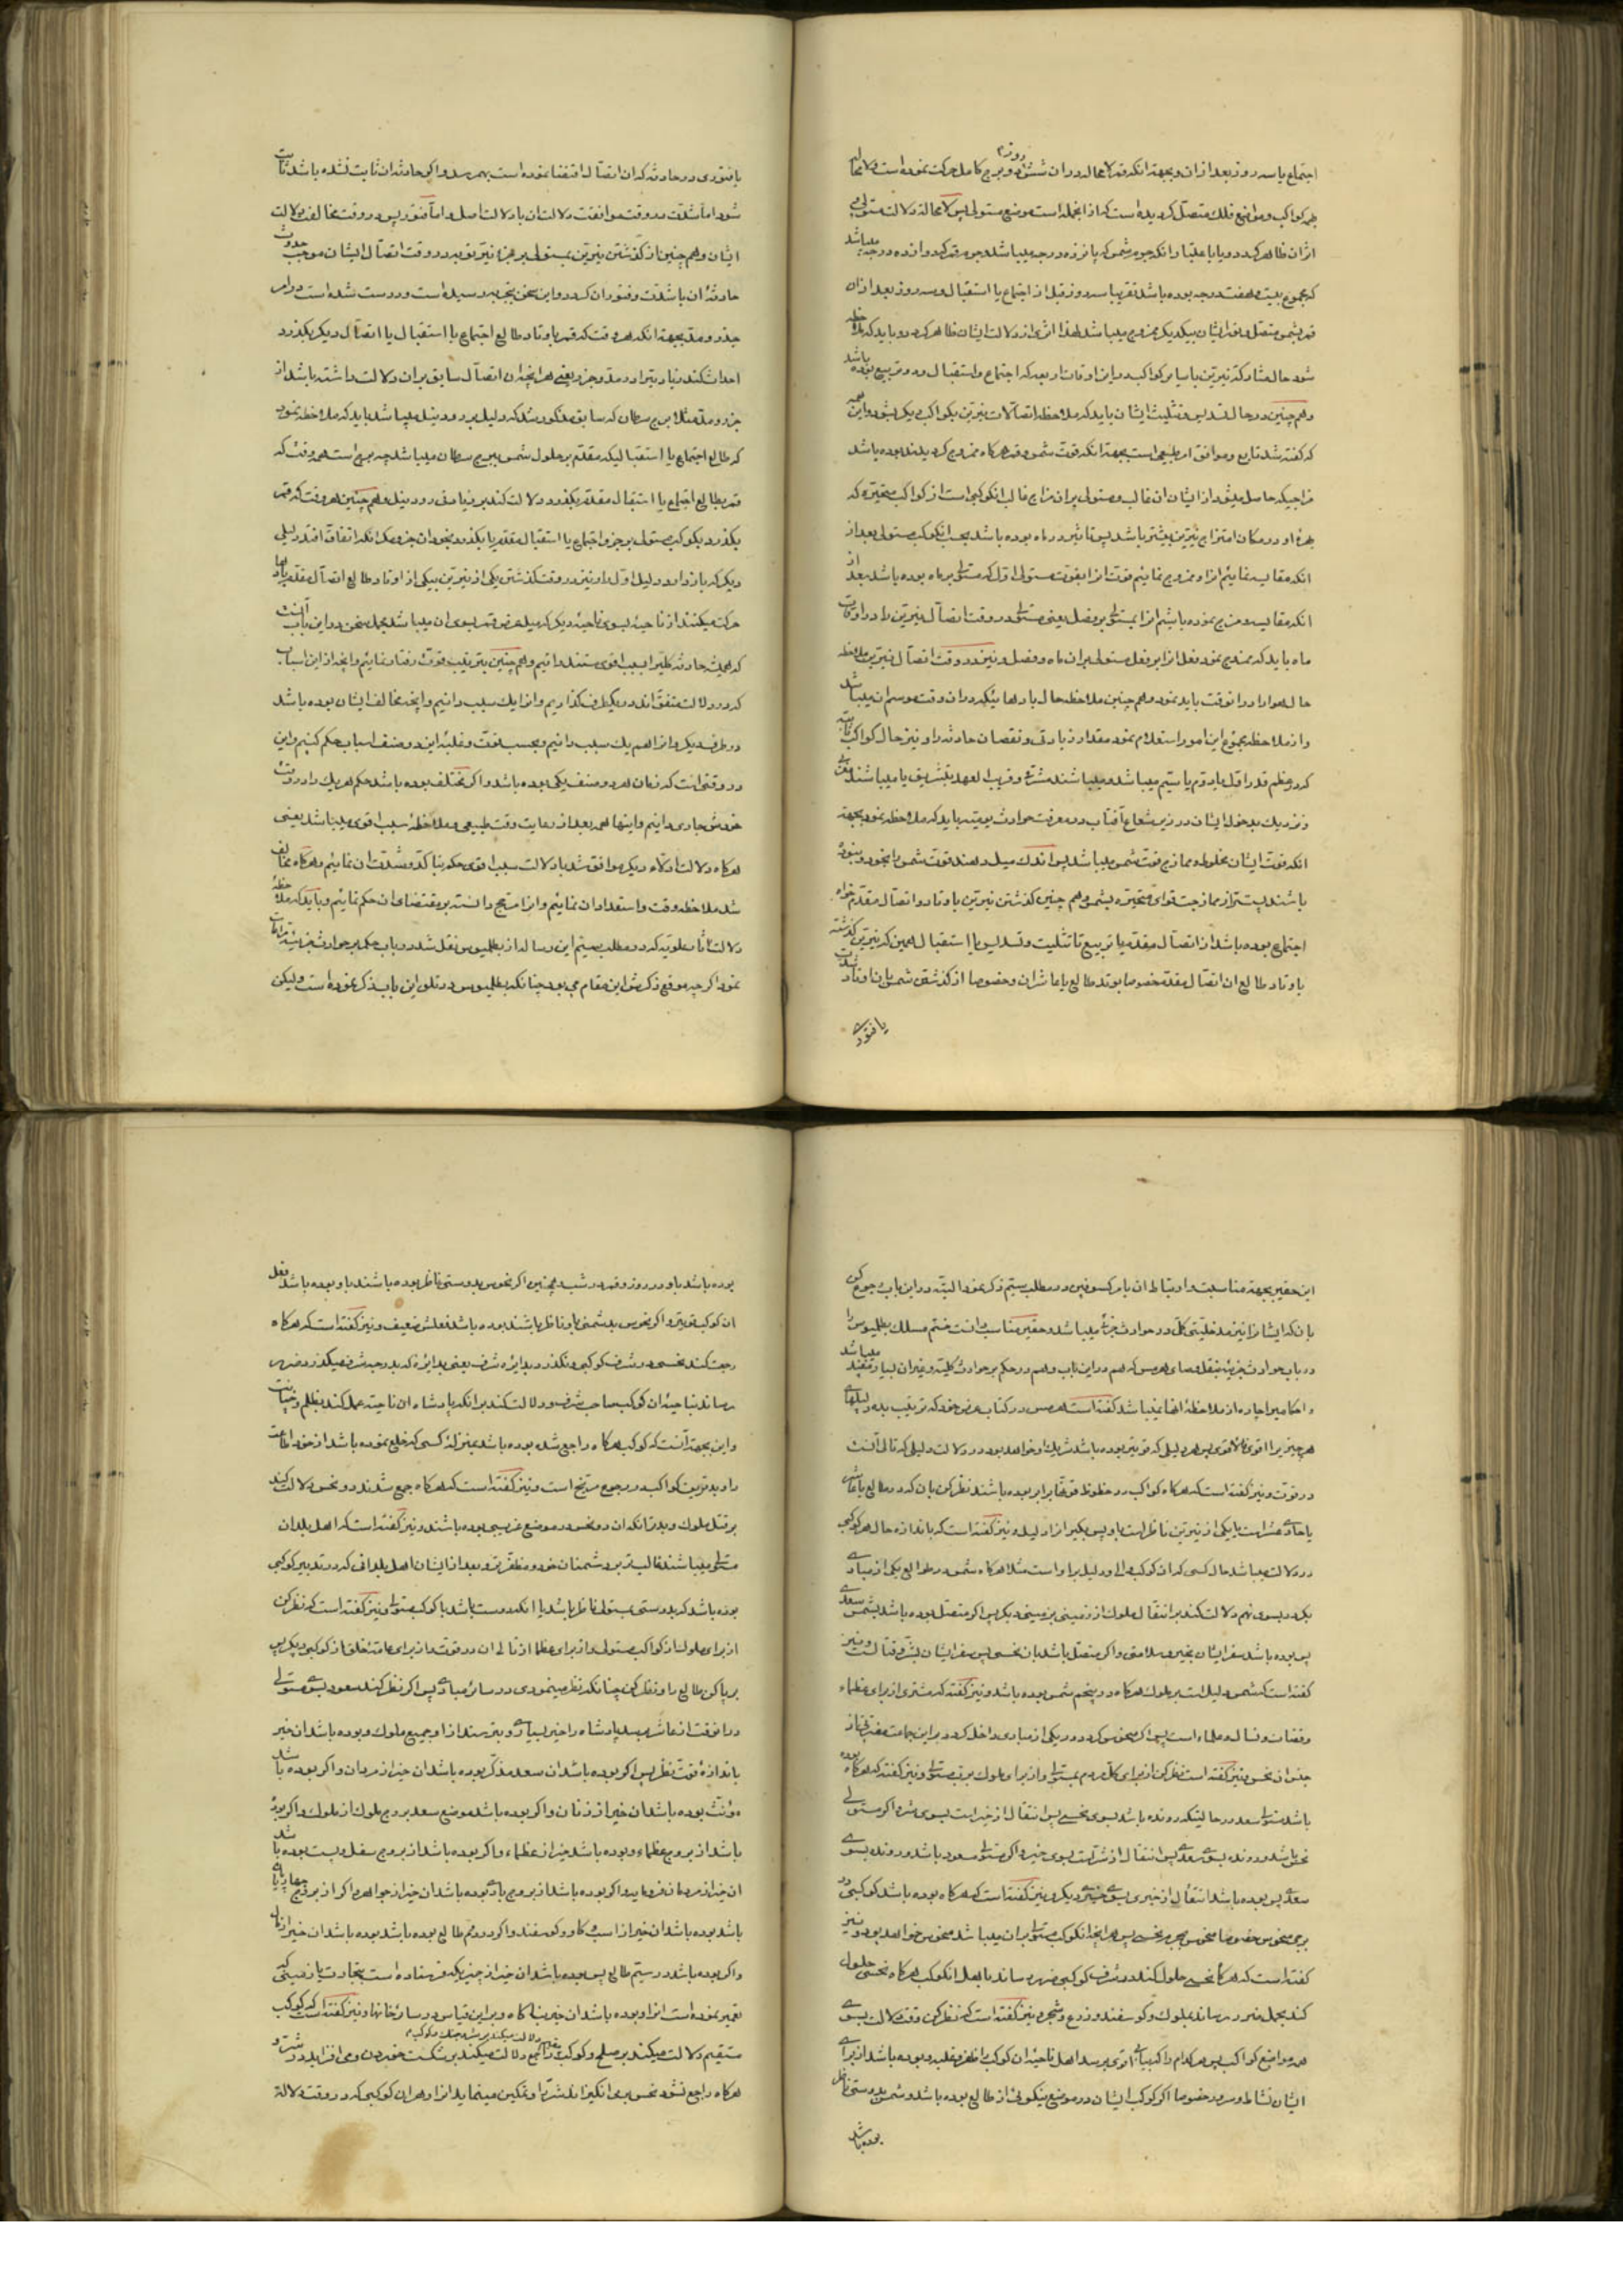 اجتماع یا سه روز بعد از ان و بجهة انکه قمر لا محاله در ان شش روز دو برج کامل حرکت نموده است
بهمه کواکب و مواضع فلک متصل کردیده است که از انجمله است موضع مستولی پس لا محاله دلالت مستولی
اثر ان ظاهر کردد و یا باعتبار انکه جرم شمس که پانزده درجه میباشد
که مجموع بیست و هفت درجه بوده باشد تقریبا سه روز قبل از اجتماع یا استقبال و سه روز بعد از ان
قمر بشمس متصل
شود حال مشارکة نیرین با سایر کواکب در این اوقات اربعه که اجتماع و استقبال و دو تربیع بوده باشد
و همچنین در حال تسدیس و تثلیث ایشان باید که ملاحظه اتصالات نیرین بکواکب دیکر بشود و این
که کفته شد تابع و موافق امر طبیعی است بجهة انکه قوت شمس و قمر هرکاه ممزوج کردیدند بوده باشد
مزاجیکه حاصل میشود از ایشان ان غالب و مستولی بر ان مزاج غالب انکوکبی است از کواکب متحیره که
بهرهٔ او در مکان امتزاج نیرین بیشتر باشد پس تاثیر در ماه بوده باشد بحسب انکوکب مستولی بعد از
انکه مقایسه نمائیم انرا و ممزوج نمائیم قوت انرا بقوت مستولی اول که مستولی بر ماه بوده باشد بعد از
انکه مقایسه و مزج نموده باشیم انرا بمستولی بر فصل یعنی مستولی در وقت اتصال نیرین را در اوقات
ماه باید که ممزوج نمود فعل انرا بر فعل مستولی بر ان ماه و فصل و نیز در وقت اتصال نیرین ملاحظه
حال هوا را در انوقت باید نمود و هم چنین ملاحظه حال بادهائیکه در ان وقت موسم ان میباشد
و از ملاحظه مجموع این امور استعلام نمود مقدار زیادتی و نقصان حادثه را و نیز حال کواکب ثابته
که در عظم قدر اول یا دوم یا سیم میباشد و میباشند مشرقی و قریب العهد بتشریق یا میباشند مغربی
و نزدیک بدخول ایشان در زیر شعاع آفتاب در معرفت حوادث یومیه باید که ملاحظه نمود بجهة
انکه قوت ایشان مخلوط و ممازج قوت شمس میباشد پس اندک میل دهند قوت شمس را بخود و بنوده
باشند پست تر از ممازجت قوای متحیره بشمس و هم چنین کذشتن نیرین باوتاد و اتصال مقدم خواه
اجتماع بوده باشد از اتصال مقدم یا تربیع تا تثلیث و تسدیس یا استقبال همین که نیرین کذشته
باوتاد طالع ان اتصال مقدم خصوصا بوتد طالع یا عاشر ان و خصوصا از کذشتن شمس بان اوتاد شدت
یا فتوری
یا فتوری در حادثه که ان اتصال اقتضا نموده است بهمرسد و اکر حادثه ان ثابت نشده باشد ثابت
شود اما شدت در وقت موافقت دلالت ان با دلالت اصل و اما فتور پس در وقت مخالف بودلالت
ایشان و هم چنین از کذشتن نیرین بمستولی بر جزء نیر نوبه در وقت اتصال ایشان موجب حدوث
حادثهٔ ان یا شدت و فتور ان کردد و این سخن بتجربه رسیده است و درست شده است در امر
جذر و مد بجهة انکه هر وقت که قمر باوتاد طالع اجتماع یا استقبال یا اتصال دیکر بکذرد
احداث کند زیادتی را در مد و جزر یعنی هر انچه ان اتصال سابق بر ان دلالت داشته باشد از
جزر و مد مثلا برج سرطان که سابق مذکور شد که دلیل بر رود نیل میباشد باید که ملاحظه نمود
که طالع اجتماع یا استقبالیکه مقدم بر حلول شمس ببرج سرطان میباشد چه برج است هر وقت که
قمر بطالع اجتماع یا استقبال مقدم بکذرد دلالت کند بر زیادتی رود نیل و هم چنین هر وقت که قمر
بکذرد بکوکب مستولی بر جزو اجتماع یا استقبال مقدم یا بکذرد بخود ان جزو مکر انکه اتفاق افتد دلیلی
دیکر که باز دارد دلیل اول را و نیز در وقت کذشتن یکی از نیرین بیکی از اوتاد طالع اتصال مقدم بادها
حرکت میکنند از ناحیهٔ بسوی ناحیهٔ دیکر که میل عرض قمر بسوی ان میباشد مجمل سخن در این باب آنست
که همیشه حادثه کلیرا سبب اقوی مستند دانیم و هم چنین بترتیب قوت رفتار نمائیم و انچه از این اسباب
که در دلالت متفق اند در یکطرف کذاریم و انرا یک سبب دانیم و انچه مخالف ایشان بوده باشد
در طرف دیکر و انرا هم یک سبب دانیم و بحسب قوت و غلبه این دو صنف اسباب حکم کنیم و این
در وقتی است که زمان هر دو صنف یکی بوده باشد و اکر مختلف بوده باشد حکم هر یک را در وقت
خودش جاری دانیم و اینها همه بعد از رعایت وقت طبیعی و ملاحظهٔ سبب اقوی میباشد یعنی
هرکاه دلالت ادلاء دیکر موافق شد با دلالت سبب اقوی حکم بتاکد و شدت ان نمائیم و هرکاه مخالف
شد ملاحظه وقت و استعداد ان نمائیم و انرا مرجح دانسته بر مقتضای ان حکم نمائیم و باید که ملاحظهٔ
دلالت قرانات علویه که در مطلب بیستم این رساله از بطلمیوس نقل شد در باب حکم بر حوادث جزئیه
نمود اکرچه موقع ذکرش این مقام می بود چنانکه بطلمیوس در تلو این باب ذکر نموده است و لیکن
این حقیر بجهة مناسبت و ارتباط ان بامر کسوفین در مطلب بیستم ذکر نمود البته در این باب رجوع کن
بانکه ایشانرا نیز مدخلیتی کلی در حوادث جزئیه میباشد و حقیر مناسب دانست ختم مسلک بطلمیوس را
در باب حوادث جزئیه بنقل فصای هرمس که هم در این باب و هم در حکم بر حوادث کلیه و غیر ان بسیار مفید میباشد
و احکامیرا چاره از ملاحظه انها نمیباشد کفته است هرمس در کتاب عرض خود که ترتیب بده دلیلهای
هر چیز یرا اقوی فالاقوی پس هر دلیلی که قویتر بوده باشد شریک او خواهد بود در دلالت دلیلی که تالی آنست
در قوت و نیز کفته است که هرکاه کواکب در حظوظ قوتها برابر بوده باشند نظر کن بان که در طالع یا عاشر
یا حادی عشر است یا یکی از نیرین ناظر است باو پس بکیر انرا دلیل و نیز کفته است که باندازه حال هر کوکبی
در دلالت میباشد حال کسی که ان کوکب والی و دلیل بر او است مثلا هرکاه شمس در طوالع یکی از مبادی
بکردد بسوی نهم دلالت کند بر انتقال ملوک از زمینی بزمینی دیکر پس اکر متصل بوده باشد بشمس سعدی
پس بوده باشد سفر ایشان بخیر و سلامتی و اکر متصل باشد بان نحسی پس سفر ایشان بشر و قتالست و نیز
کفته است که شمس دلیل است بر ملوک هرکاه در پنجم شمس بوده باشد و نیز کفته که مشتری از برای عظماء
و قضات و نسال و علماء است پس اکر منحوس کردد در یکی از مبادی داخل کردد بر این جماعت مضرتی از
جنس ان نحس و نیز کفته است نظر کن از برای کل مردم بمستولی و از برای ملوک برب مستولی و نیز کفته که هرکاه بوده
باشد مستولی سعد در حالتیکه رونده باشد بسوی نحسی پس انتقال از خیر است بسوی شر و اکر مستولی
نحس باشد و رونده بسوی سعدی پس انتقال از شر است بسوی خیر و اکر مستولی مسعود باشد و رونده بسوی
سعدی پس بوده باشد انتقال از خیری بسوی خیری دیکر و نیز کفته است که هرکاه بوده باشد کوکبی در
برجی منحوس خصوصا منحوس بجرم نحسی پس هر انچه انکوکب مستولی بر ان میباشد منحوس خواهد بود و نیز
کفته است که هرکاه نحسی حلول کند در شرف کوکبی ضرر رساند باهل انکوکب هرکاه نحسی حلول
کند بحمل ضرر رساند بملوک و کوسفند و زرع و شجر و نیز کفته است که نظر کن وقت دلالت بسوی
همه مواضع کواکب پس هر کدام را که بیابی اقوی پر رسد اهل ناحیهٔ ان کوکب را ظفر و غلبه و بوده باشد از برای
ایشان نشاط و سرور خصوصا اکر کوکب ایشان در موضع نیکوئی از طالع بوده باشد و شمس بدوستی ناظر
بوده باشد
بوده باشد باو در روز و قمر در شب و همچنین اکر نحوس بدوستی ناظر بوده باشند باو بوده باشد فعل
ان کوکب قویتر و اکر نحوس بدشمنی باو ناظر باشند بوده باشد فعلش ضعیف و نیز کفته است که هرکاه
رجعت کند نحسی در شرف کوکبی و بکذرد بدایره شرف یعنی بدایرهٔ که بدرجه شرف میکذرد ضرر
رساند بناحیهٔ ان کوکب صاحب شرف و دلالت کند بر انکه پادشاه ان ناحیه عمل کند بظلم و خیانت
و این بجهة آنست که کوکب هرکاه راجع شده بوده باشد بمنزلهٔ کسی که خلع نموده باشد از خود اطاعت
را و بدترین کواکب در رجوع مریخ است و نیز کفته است که هرکاه جمع شدند دو نحس دلالت کند
بر قتل ملوک و بدتر انکه ان دو نحس در موضع غریبی بوده باشند و نیز کفته است که اهل بلدان
مستولی میباشند غالب تر بر دشمنان خود و مظفرتر و بعد از ایشان اهل بلدانی که در تدبیر کوکبی
بوده باشد که بدوستی بمستولی ناظر باشد یا انکه دوست باشد با کوکب مستولی و نیز کفته است که نظر کن
از برای ملوک از کواکب مستولی و از برای عظما از تالی ان در قوت و از برای عامهٔ خلق از کوکبی دیکر پس
بر پا کن طالع را و نظر کن چنانکه نظر مینمودی در سائر مبادی پس اکر نظر کنند سعود بسوی مستولی
در انوقت از عاشر میرسد پادشاه را خیر بسیاری و بترسند از او جمیع ملوک و بوده باشد ان خیر
باندازهٔ قوت نظر پس اکر بوده باشد ان سعد مذکر بوده باشد ان خیر از مردان و اکر بوده باشد
مؤنث بوده باشد ان خیر از زنان و اکر بوده باشد موضع سعد بروج ملوک از ملوک و اکر بوده
باشد از بروج عظماء و بوده باشد خیر از عظماء و اکر بوده باشد از بروج سفل و پست بوده باشد
ان خیر از مردمان فرومایه و اکر بوده باشد از بروج بادی بوده باشد ان خیر از جواهر و اکر از بروج چهار پایان
باشد بوده باشد ان خیر از اسب و کاو و کوسفند و اکر در دوم طالع بوده باشد بوده باشد ان خیر از مال
و اکر بوده باشد در سیم طالع پس بوده باشد ان خیر از چیزیکه فرستاده است بتجارت یا زمینی که
تعمیر نموده است انرا و بوده باشد ان خیر بناکاه و بر این قیاس در سائر خانها و نیز کفته است که کوکب
مستقیم دلالت میکند بر صلح و کوکب راجع دلالت میکند بر شکست خوردن و می افزاید در شر و
هرکاه راجع نشود نحس بر می انکیزاند شر را و تمکین مینماید انرا و هر ان کوکبی که در وقت دلالة